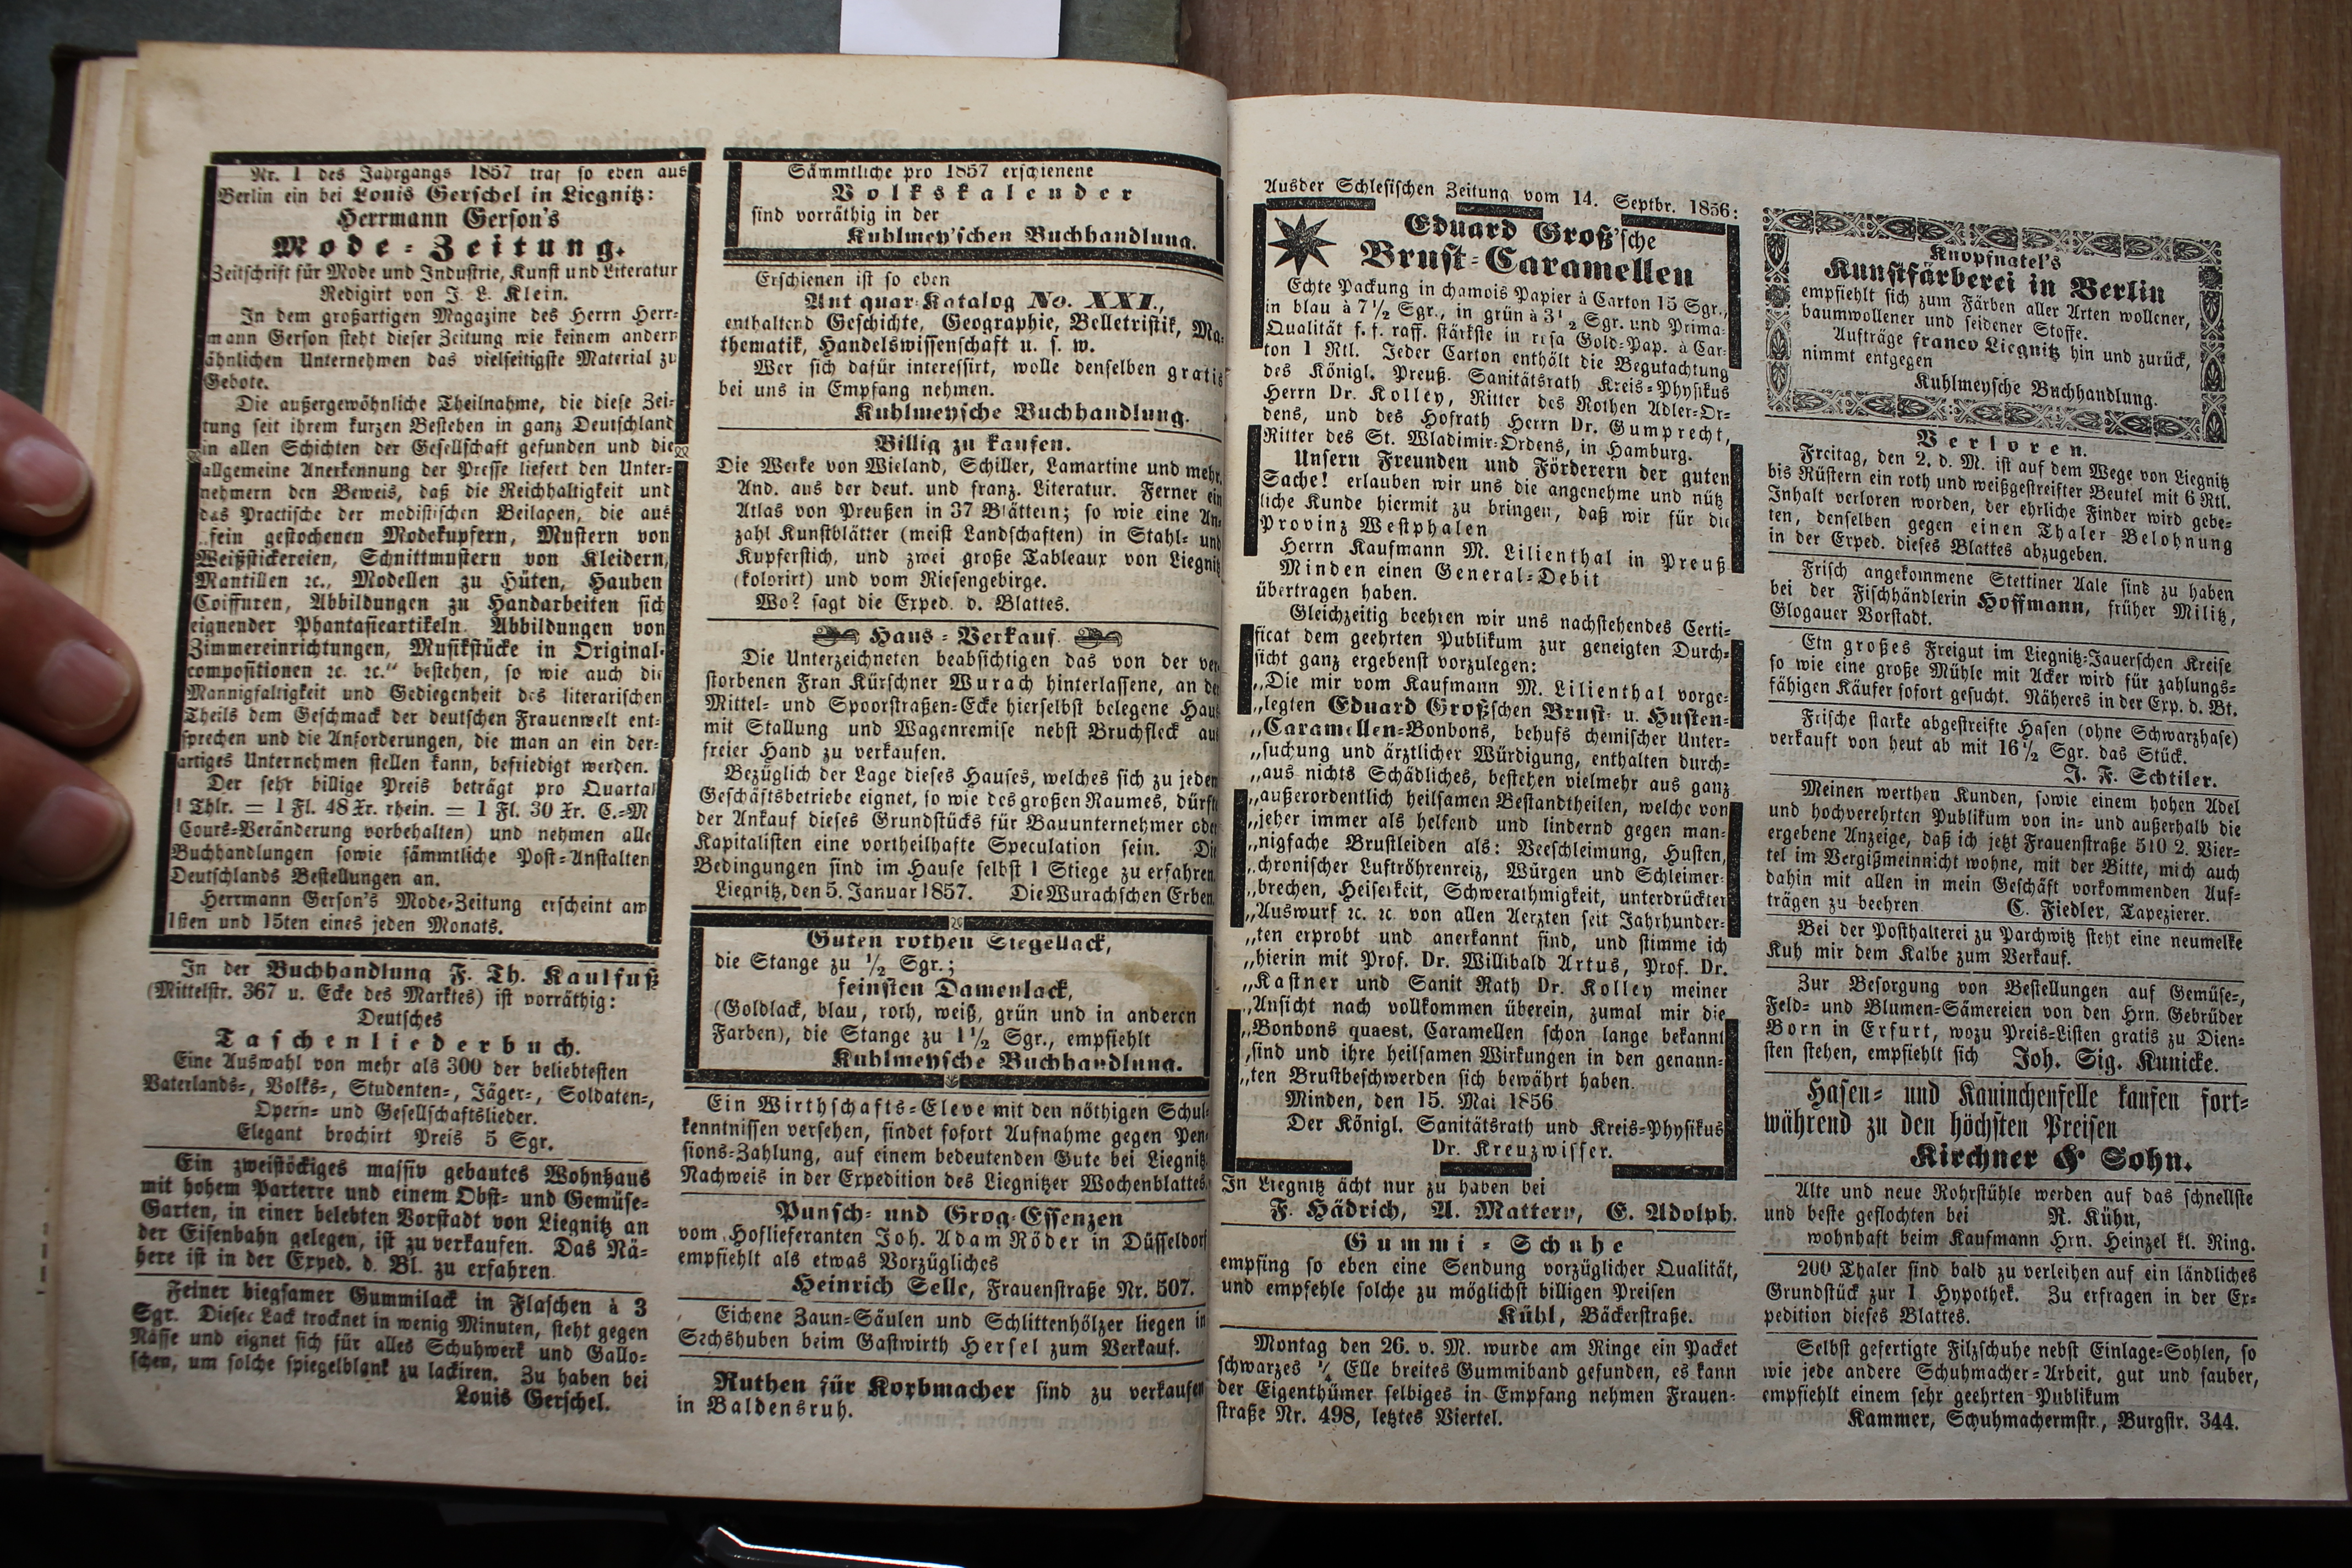 Nr. 1 des Jahrgangs 1857 traf so eben aus
Berlin ein bei Louis Gerschel in Liegnitz:
Herrmann Gerson's
Mode-Zeitung.
Zeitschrift für Mode und Industrie, Kunst und Literatur
Redigirt von J. L. Klein.
In dem großartigen Magazine des Herrn Herr-
mann Gerson steht dieser Zeitung wie keinem andern
ähnlichen Unternehmen das vielseitigste Material zu
Gebote.
Die außergewöhnliche Theilnahme, die diese Zei-
tung seit ihrem kurzen Bestehen in ganz Deutschland
in allen Schichten der Gesellschaft gefunden und die
allgemeine Anerkennung der Presse liefert den Unter-
nehmern den Beweis, daß die Reichhaltigkeit und
das Practische der modistischen Beilagen, die aus
„fein gestochenen Modekupfern, Mustern von
Weißstickereien, Schnittmustern von Kleidern,
Mantillen ꝛc., Modellen zu Hüten, Hauben
Coiffuren, Abbildungen zu Handarbeiten sich
eignender Phantasieartikeln. Abbildungen von
Zimmereinrichtungen, Musikstücke in Original-
compositionen ꝛc. ꝛc.“ bestehen, so wie auch die
Mannigfaltigkeit und Gediegenheit des literarischen
Theils dem Geschmack der deutschen Frauenwelt ent-
sprechen und die Anforderungen, die man an ein der-
artiges Unternehmen stellen kann, befriedigt werden.
Der sehr billige Preis beträgt pro Quartal
1 Thlr. = 1 Fl. 48 Xr. rhein. = 1 Fl. 30 Xr. C.-M
Cours-Veränderung vorbehalten) und nehmen alle
Buchhandlungen sowie sämmtliche Post-Anstalten
Deutschlands Bestellungen an.
Herrmann Gerson's Mode-Zeitung erscheint am
1sten und 15ten eines jeden Monats.
In der Buchhandlung F. Th. Kaulfuß
(Mittelstr. 367 u. Ecke des Marktes) ist vorräthig:
Deutsches
Taschenliederbuch.
Eine Auswahl von mehr als 300 der beliebtesten
Vaterlands-, Volks-, Studenten-, Jäger-, Soldaten-,
Opern- und Gesellschaftslieder.
Elegant brochirt Preis 5 Sgr.
Ein zweistöckiges massiv gebautes Wohnhaus
mit hohem Parterre und einem Obst- und Gemüse-
Garten, in einer belebten Vorstadt von Liegnitz an
der Eisenbahn gelegen, ist zu verkaufen. Das Nä-
here ist in der Exped. d. Bl. zu erfahren.
Feiner biegsamer Gummilack in Flaschen à 3
Sgr. Dieser Lack trocknet in wenig Minuten, steht gegen
Nässe und eignet sich für alles Schuhwerk und Gallo-
schen, um solche spiegelblank zu lackiren. Zu haben bei
Louis Gerschel.
Sämmtliche pro 1857 erschienene
Volkskalender
sind vorräthig in der
Kuhlmey'schen Buchhandlung.
Erschienen ist so eben
Ant quar-Katalog No. XXI.,
enthaltend Geschichte, Geographie, Belletristik, Ma-
thematik, Handelswissenschaft u. s. w.
Wer sich dafür interessirt, wolle denselben gratis
bei uns in Empfang nehmen.
Kuhlmeysche Buchhandlung.
Billig zu kaufen.
Die Werke von Wieland, Schiller, Lamartine und mehr.
And. aus der deut. und franz. Literatur. Ferner ein
Atlas von Preußen in 37 Blättern; so wie eine An-
zahl Kunstblätter (meist Landschaften) in Stahl- und
Kupferstich, und zwei große Tableaux von Liegnitz
(kolorirt) und vom Riesengebirge.
Wo? sagt die Exped. d. Blattes.
Haus-Verkauf.
Die Unterzeichneten beabsichtigen das von der ver-
storbenen Frau Kürschner Wurach hinterlassene, an der
Mittel- und Spoorstraßen-Ecke hierselbst belegene Haus
mit Stallung und Wagenremise nebst Bruchfleck aus
freier Hand zu verkaufen.
Bezüglich der Lage dieses Hauses, welches sich zu jedem
Geschäftsbetriebe eignet, so wie des großen Raumes, dürfte
der Ankauf dieses Grundstücks für Bauunternehmer oder
Kapitalisten eine vortheilhafte Speculation sein. Die
Bedingungen sind im Hause selbst 1 Stiege zu erfahren.
Liegnitz, den 5. Januar 1857. Die Wurachschen Erben.
Guten rothen Siegellack,
die Stange zu 1/2 Sgr.;
feinsten Damenlack,
(Goldlack, blau, roth, weiß, grün und in anderen
Farben), die Stange zu 1 1/2 Sgr., empfiehlt
Kuhlmeysche Buchhandlung.
Ein Wirthschafts-Eleve mit den nöthigen Schul-
kenntnissen versehen, findet sofort Aufnahme gegen Pen-
sions-Zahlung, auf einem bedeutenden Gute bei Liegnitz.
Nachweis in der Expedition des Liegnitzer Wochenblattes.
Punsch- und Grog-Essenzen
vom Hoflieferanten Joh. Adam Röder in Düsseldorf
empfiehlt als etwas Vorzügliches
Heinrich Selle, Frauenstraße Nr. 507.
Eichene Zaun-Säulen und Schlittenhölzer liegen in
Sechshuben beim Gastwirth Hersel zum Verkauf.
Ruthen für Korbmacher sind zu verkaufen
in Baldensruh.
Ausder Schlesischen Zeitung vom 14. Septbr. 1856:
Eduard Groß'sche
Brust-Caramellen
Echte Packung in chamois Papier à Carton 15 Sgr.,
in blau à 7 1/2 Sgr., in grün à 3 1/2 Sgr. und Prima-
Qualität f. f. raff. stärkste in rosa Gold-Pap. à Car-
ton 1 Rtl. Jeder Carton enthält die Begutachtung
des Königl. Preuß. Sanitätsrath Kreis-Physikus
Herrn Dr. Kolley, Ritter des Rothen Adler-Or-
dens, und des Hofrath Herrn Dr. Gumprecht,
Ritter des St. Wladimir-Ordens, in Hamburg.
Unsern Freunden und Förderern der guten
Sache! erlauben wir uns die angenehme und nütz
liche Kunde hiermit zu bringen, daß wir für die
Provinz Westphalen
Herrn Kaufmann M. Lilienthal in Preuß
Minden einen General-Debit
übertragen haben.
Gleichzeitig beehren wir uns nachstehendes Certi-
ficat dem geehrten Publikum zur geneigten Durch-
sicht ganz ergebenst vorzulegen:
„Die mir vom Kaufmann M. Lilienthal vorge-
„legten Eduard Großschen Brust- u. Husten-
„Caramellen-Bonbons, behufs chemischer Unter-
„suchung und ärztlicher Würdigung, enthalten durch-
„aus nichts Schädliches, bestehen vielmehr aus ganz
„außerordentlich heilsamen Bestandtheilen, welche von
„jeher immer als helfend und lindernd gegen man-
„nigfache Brustleiden als: Veeschleimung, Husten,
„chronischer Luftröhrenreiz, Würgen und Schleimer-
„brechen, Heiserkeit, Schwerathmigkeit, unterdrückter
„Auswurf ꝛc. ꝛc. von allen Aerzten seit Jahrhunder-
„ten erprobt und anerkannt sind, und stimme ich
„hierin mit Prof. Dr. Willibald Artus, Prof. Dr.
„Kastner und Sanit Rath Dr. Kolley meiner
„Ansicht nach vollkommen überein, zumal mir die
„Bonbons quaest. Caramellen schon lange bekannt
„sind und ihre heilsamen Wirkungen in den genann-
„ten Brustbeschwerden sich bewährt haben.
Minden, den 15. Mai 1856
Der Königl. Sanitätsrath und Kreis-Physikus
Dr. Kreuzwisser.
In Liegnitz ächt nur zu haben bei
F. Hädrich, A. Mattern, E. Adolph.
Gummi-Schuhe
empfing so eben eine Sendung vorzüglicher Qualität,
und empfehle solche zu möglichst billigen Preisen
Kühl, Bäckerstraße.
Montag den 26. v. M. wurde am Ringe ein Packet
schwarzes 1/4 Elle breites Gummiband gefunden, es kann
der Eigenthümer selbiges in Empfang nehmen Frauen-
straße Nr. 498, letztes Viertel.
Knopfnatel's
Kunstfärberei in Berlin
empfiehlt sich zum Färben aller Arten wollener,
baumwollener und seidener Stoffe.
Aufträge franco Liegnitz hin und zurück,
nimmt entgegen
Kuhlmeysche Buchhandlung.
Verloren.
Freitag, den 2. d. M. ist auf dem Wege von Liegnitz
bis Rüstern ein roth und weißgestreifter Beutel mit 6 Rtl.
Inhalt verloren worden, der ehrliche Finder wird gebe-
ten, denselben gegen einen Thaler Belohnung
in der Exped. dieses Blattes abzugeben.
Frisch angekommene Stettiner Aale sind zu haben
bei der Fischhändlerin Hoffmann, früher Militz,
Glogauer Vorstadt.
Ein großes Freigut im Liegnitz-Jauerschen Kreise
so wie eine große Mühle mit Acker wird für zahlungs-
fähigen Käufer sofort gesucht. Näheres in der Exp. d. Bt.
Frische starke abgestreifte Hasen (ohne Schwarzhase)
verkauft von heut ab mit 16 1/2 Sgr. das Stück.
J. F. Schtiler.
Meinen werthen Kunden, sowie einem hohen Adel
und hochverehrten Publikum von in- und außerhalb die
ergebene Anzeige, daß ich jetzt Frauenstraße 510 2. Vier-
tel im Vergißmeinnicht wohne, mit der Bitte, mich auch
dahin mit allen in mein Geschäft vorkommenden Auf-
trägen zu beehren C. Fiedler, Tapezierer.
Bei der Posthalterei zu Parchwitz steht eine neumelke
Kuh mir dem Kalbe zum Verkauf.
Zur Besorgung von Bestellungen auf Gemüse-,
Feld- und Blumen-Sämereien von den Hrn. Gebrüder
Born in Erfurt, wozu Preis-Listen gratis zu Dien-
sten stehen, empfiehlt sich Joh. Sig. Kunicke.
Hasen- und Kaninchenfelle kaufen fort-
während zu den höchsten Preisen
Kirchner & Sohn.
Alte und neue Rohrstühle werden auf das schnellste
und beste geflochten bei R. Kühn,
wohnhaft beim Kaufmann Hrn. Heinzel kl. Ring.
200 Thaler sind bald zu verleihen auf ein ländliches
Grundstück zur 1 Hypothek. Zu erfragen in der Ex-
pedition dieses Blattes.
Selbst gefertigte Filzschuhe nebst Einlage-Sohlen, so
wie jede andere Schuhmacher-Arbeit, gut und sauber,
empfiehlt einem sehr geehrten Publikum
Kammer, Schuhmachermstr., Burgstr. 344.